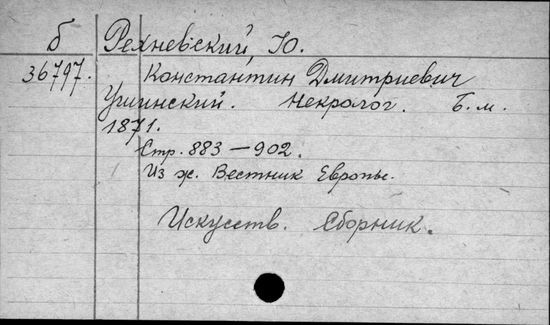 б Рехневский, Ю.
36797. Константин Дмитриевич
Ушинский. Некролог. Б. м.
1871.
Стр. 883 — 902.
Из ж. Вестник Европы.
Искусств. Сборник.